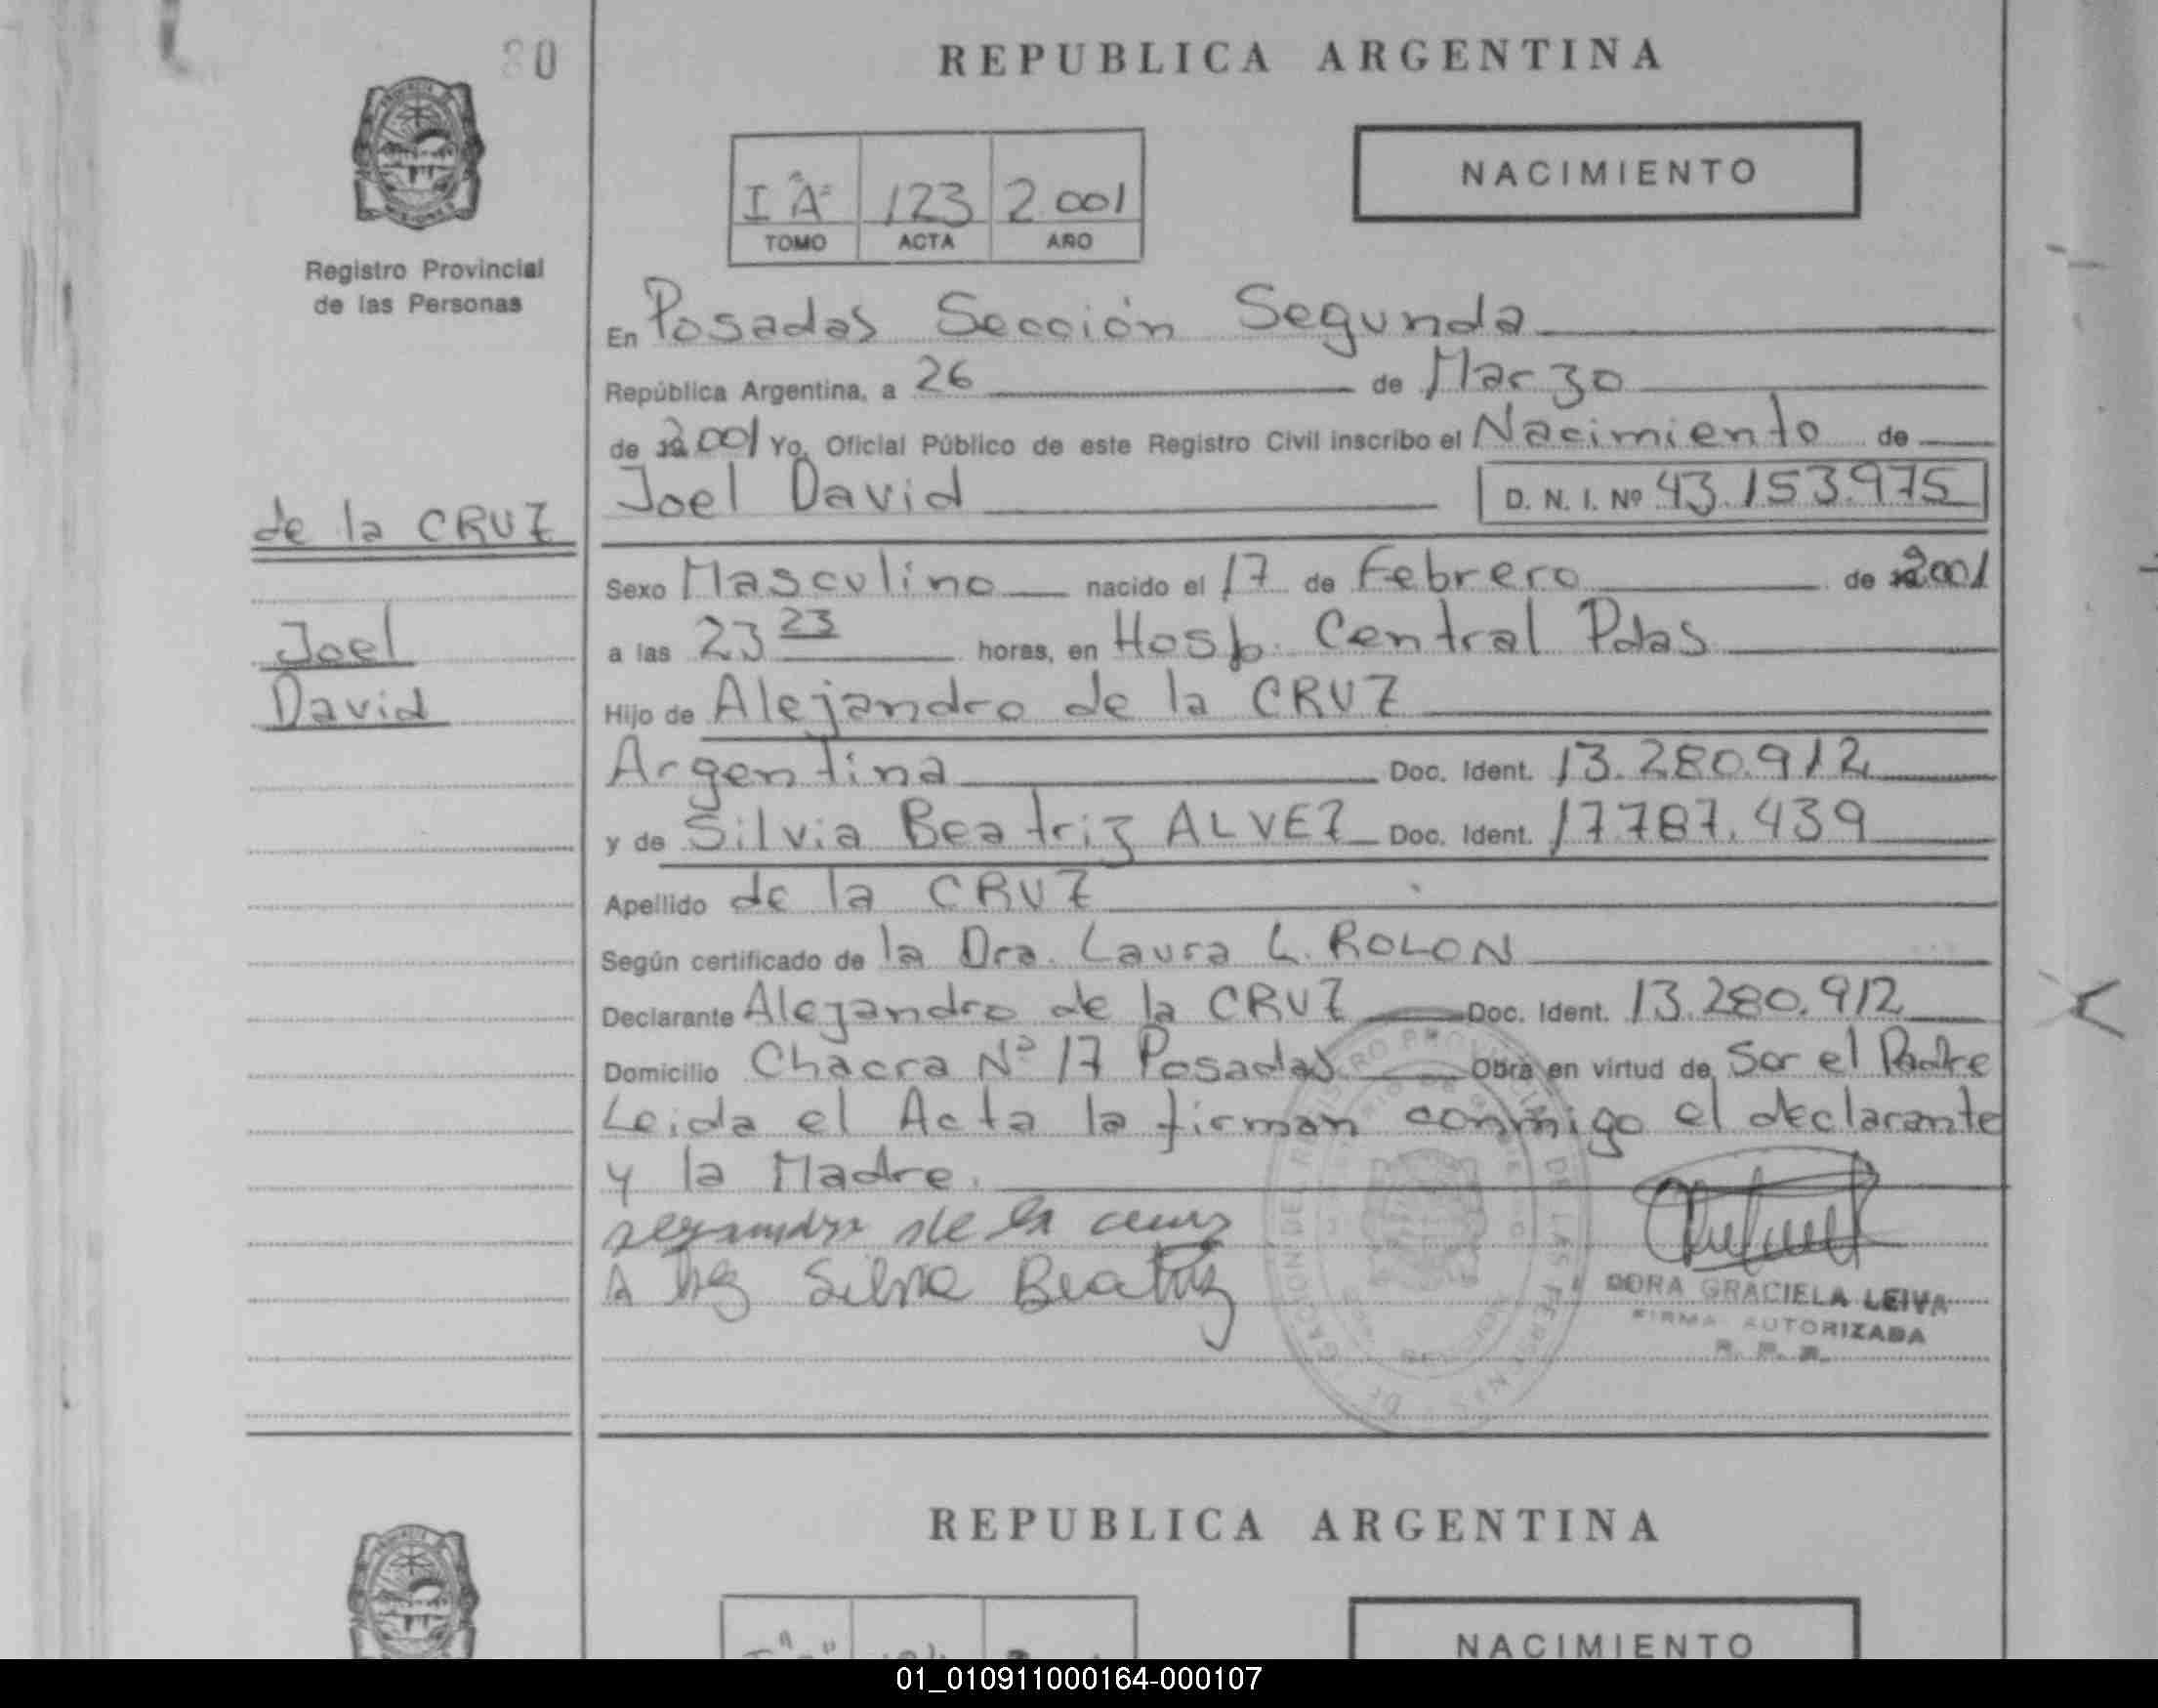 80
REPUBLICA ARGENTINA
NACIMIENTO
I "A" 123 2001
TOMO ACTA AÑO
Registro Provincial
de las Personas
En Posadas Sección Segunda
República Argentina, a 26 de Marzo
de 2001 Yo, Oficial Público de este Registro Civil inscribo el Nacimiento de
Joel David D. N. I. Nº 43.153.975
de la CRUZ
Joel
David
Sexo Masculino nacido el 17 de Febrero de 2001
a las 23 23 horas, en Hosp. Central Pdas
Hijo de Alejandro de la CRUZ
Argentina Doc. Ident. 13.280.912
y de Silvia Beatriz ALVEZ Doc. Ident. 17787.439
Apellido de la CRUZ
Según certificado de la Dra. Laura L. ROLON
Declarante Alejandro de la CRUZ Doc. Ident. 13.280.912
Domicilio Chacra Nº 17 Posadas Obra en virtud de Ser el Padre
Leida el Acta la firman conmigo el declarante
y la Madre.
de la cruz
Silvia Beatriz
DORA GRACIELA LEIVA
FIRMA AUTORIZADA
R. P. P.
REPUBLICA ARGENTINA
NACIMIENTO
01_010911000164-000107